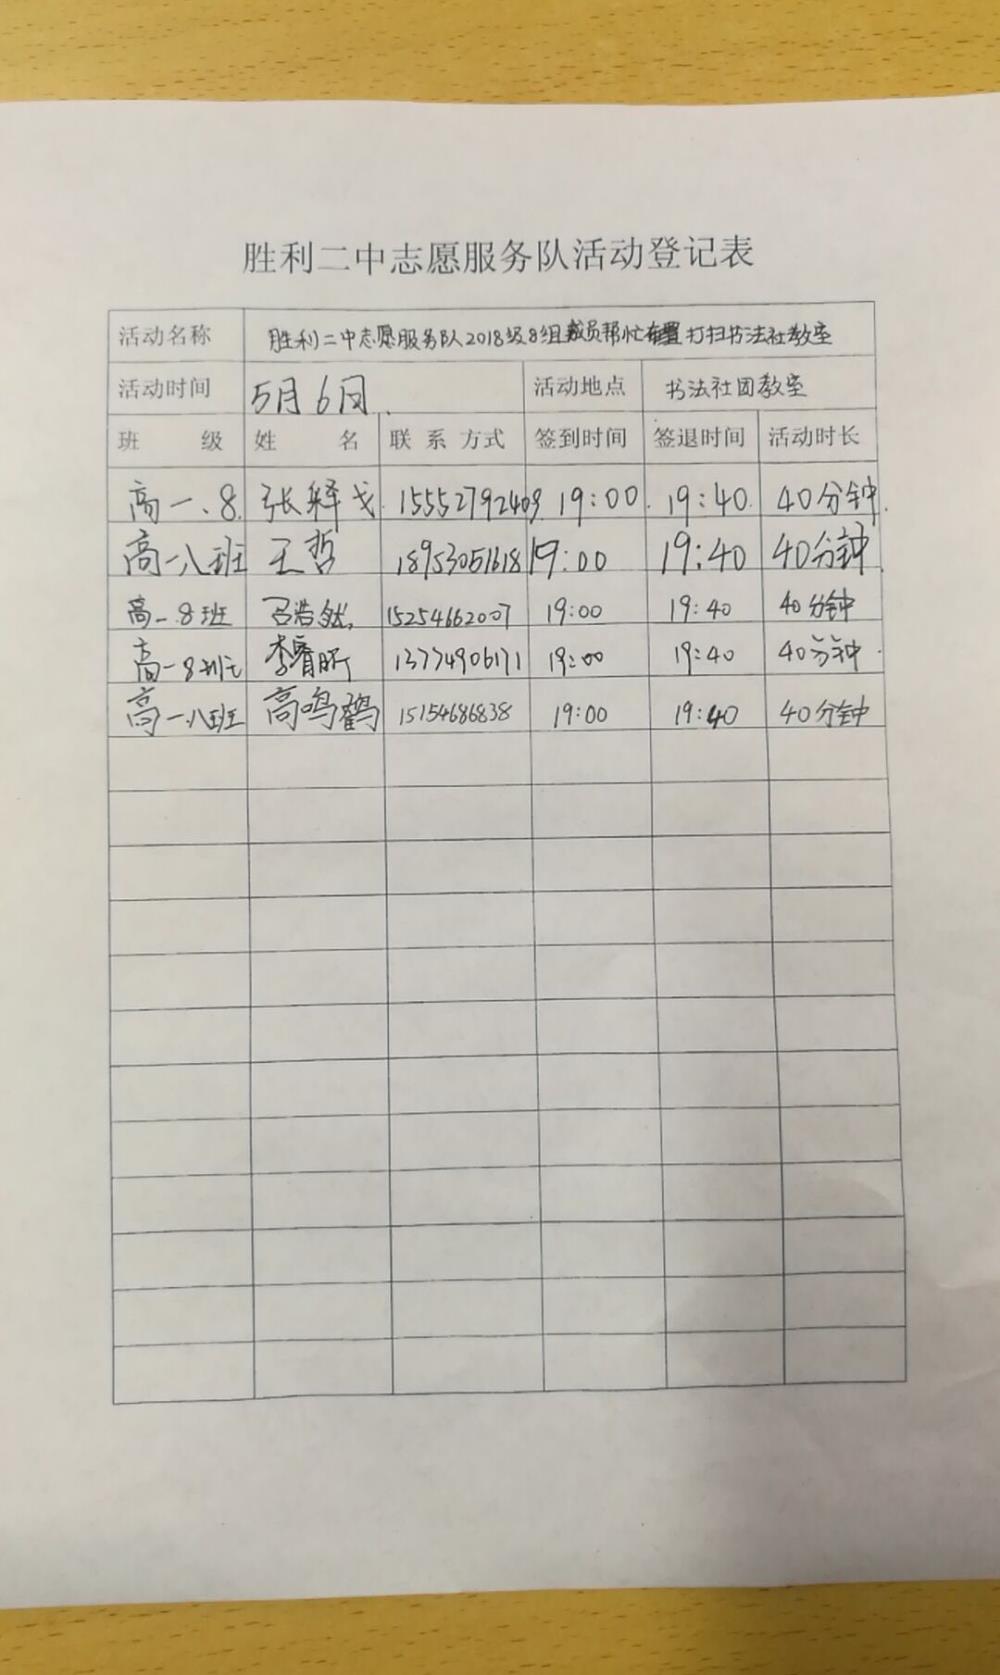 胜利二中志愿服务队活动登记表
活动名称 胜利二中志愿服务队2018级8组成员帮忙布置打扫书法社教室
活动时间 5月6日. 活动地点 书法社团教室
班 级 姓 名 联 系 方式 签到时间 签退时间 活动时长
高一.8. 张释戈 15552792409 19:00. 19:40. 40分钟.
高一八班 王哲 18953051618 19:00 19:40 40分钟.
高一.8班 吕浩然, 15254662007 19:00 19:40 40分钟
高一8班 李睿昕 13774906171 19:00 19:40 40分钟.
高一.八班 高鸣鹤 15154686838 19:00 19:40 40分钟